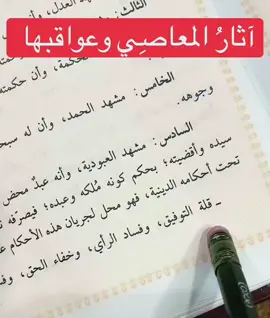 آثارُ المعاصِي وعواقبها
الثالث: مشهد العدل، وأن
الحكمة، وأن حكمته
الخامس: مشهد الحمد، وأن له سبح
وجوهه.
السادس: مشهد العبودية، وأنه عبدٌ محض
سيده وأقضيته؛ بحكم كونه مُلكه وعبده؛ فيصرفه
تحت أحكامه الدينية، فهو محل لجريان هذه الأحكام ع
ـ قلة التوفيق، وفساد الرأي، وخفاء الحق، وفس